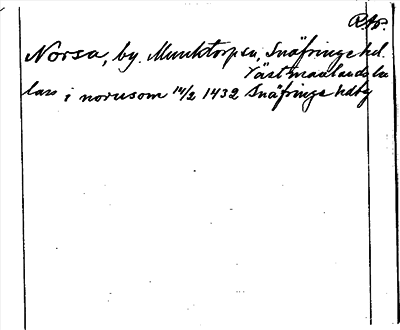 R.Ap.
Norsa, by. Munktorp sn, Snäfringe hd.
Västmanlands län
lars i norusom 14/2 1432 Snäfringe hdby